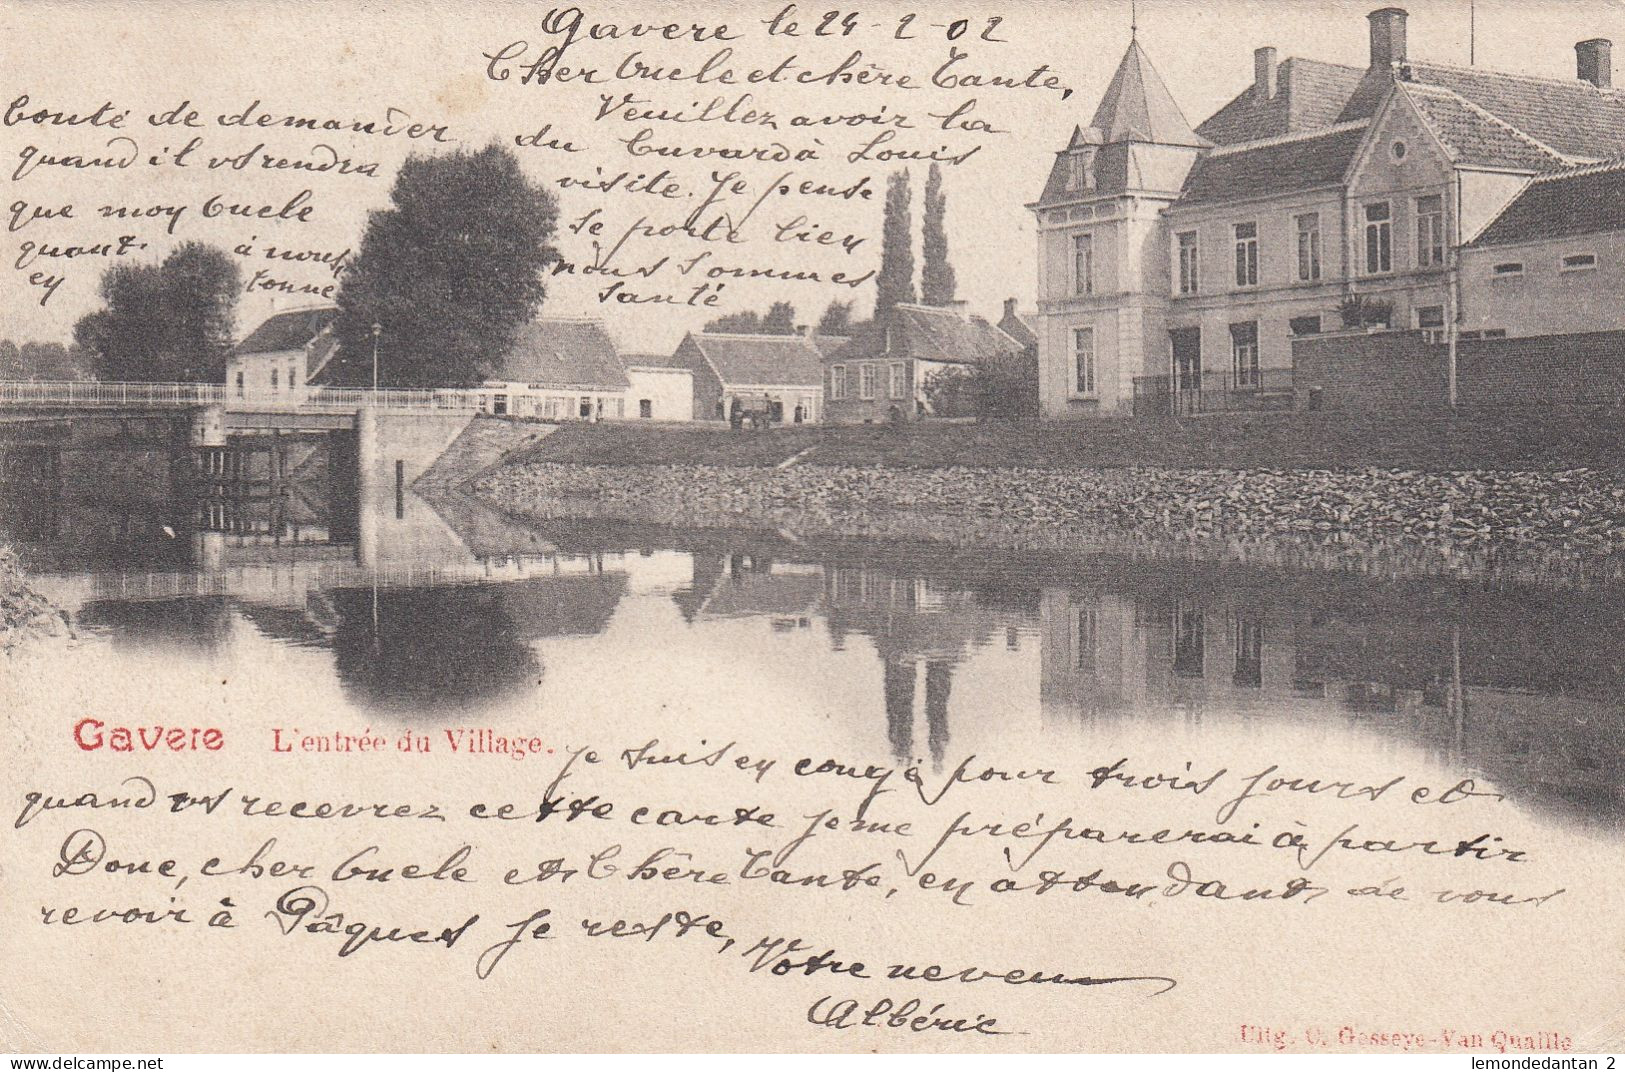 Gavere le 24-2-02
Cher Oncle et chère Tante,
Veuillez avoir la
bonté de demander
du Cuvard à Louis
quand il vs rendra
visite. Je pense
que moy Oncle
se porte bien
quant à nous
nous sommes
en bonne
santé
Gavere L'entrée du Village.
Je suis en congé pour trois jours et
quand vs recevrez cette carte je me préparerai à partir
Donc, cher Oncle et Chère Tante, en attendant de vous
revoir à Pâques je reste,
Votre neveu
Albéric
Uitg. C. Gesseye-Van Quaille
lemondedantan 2